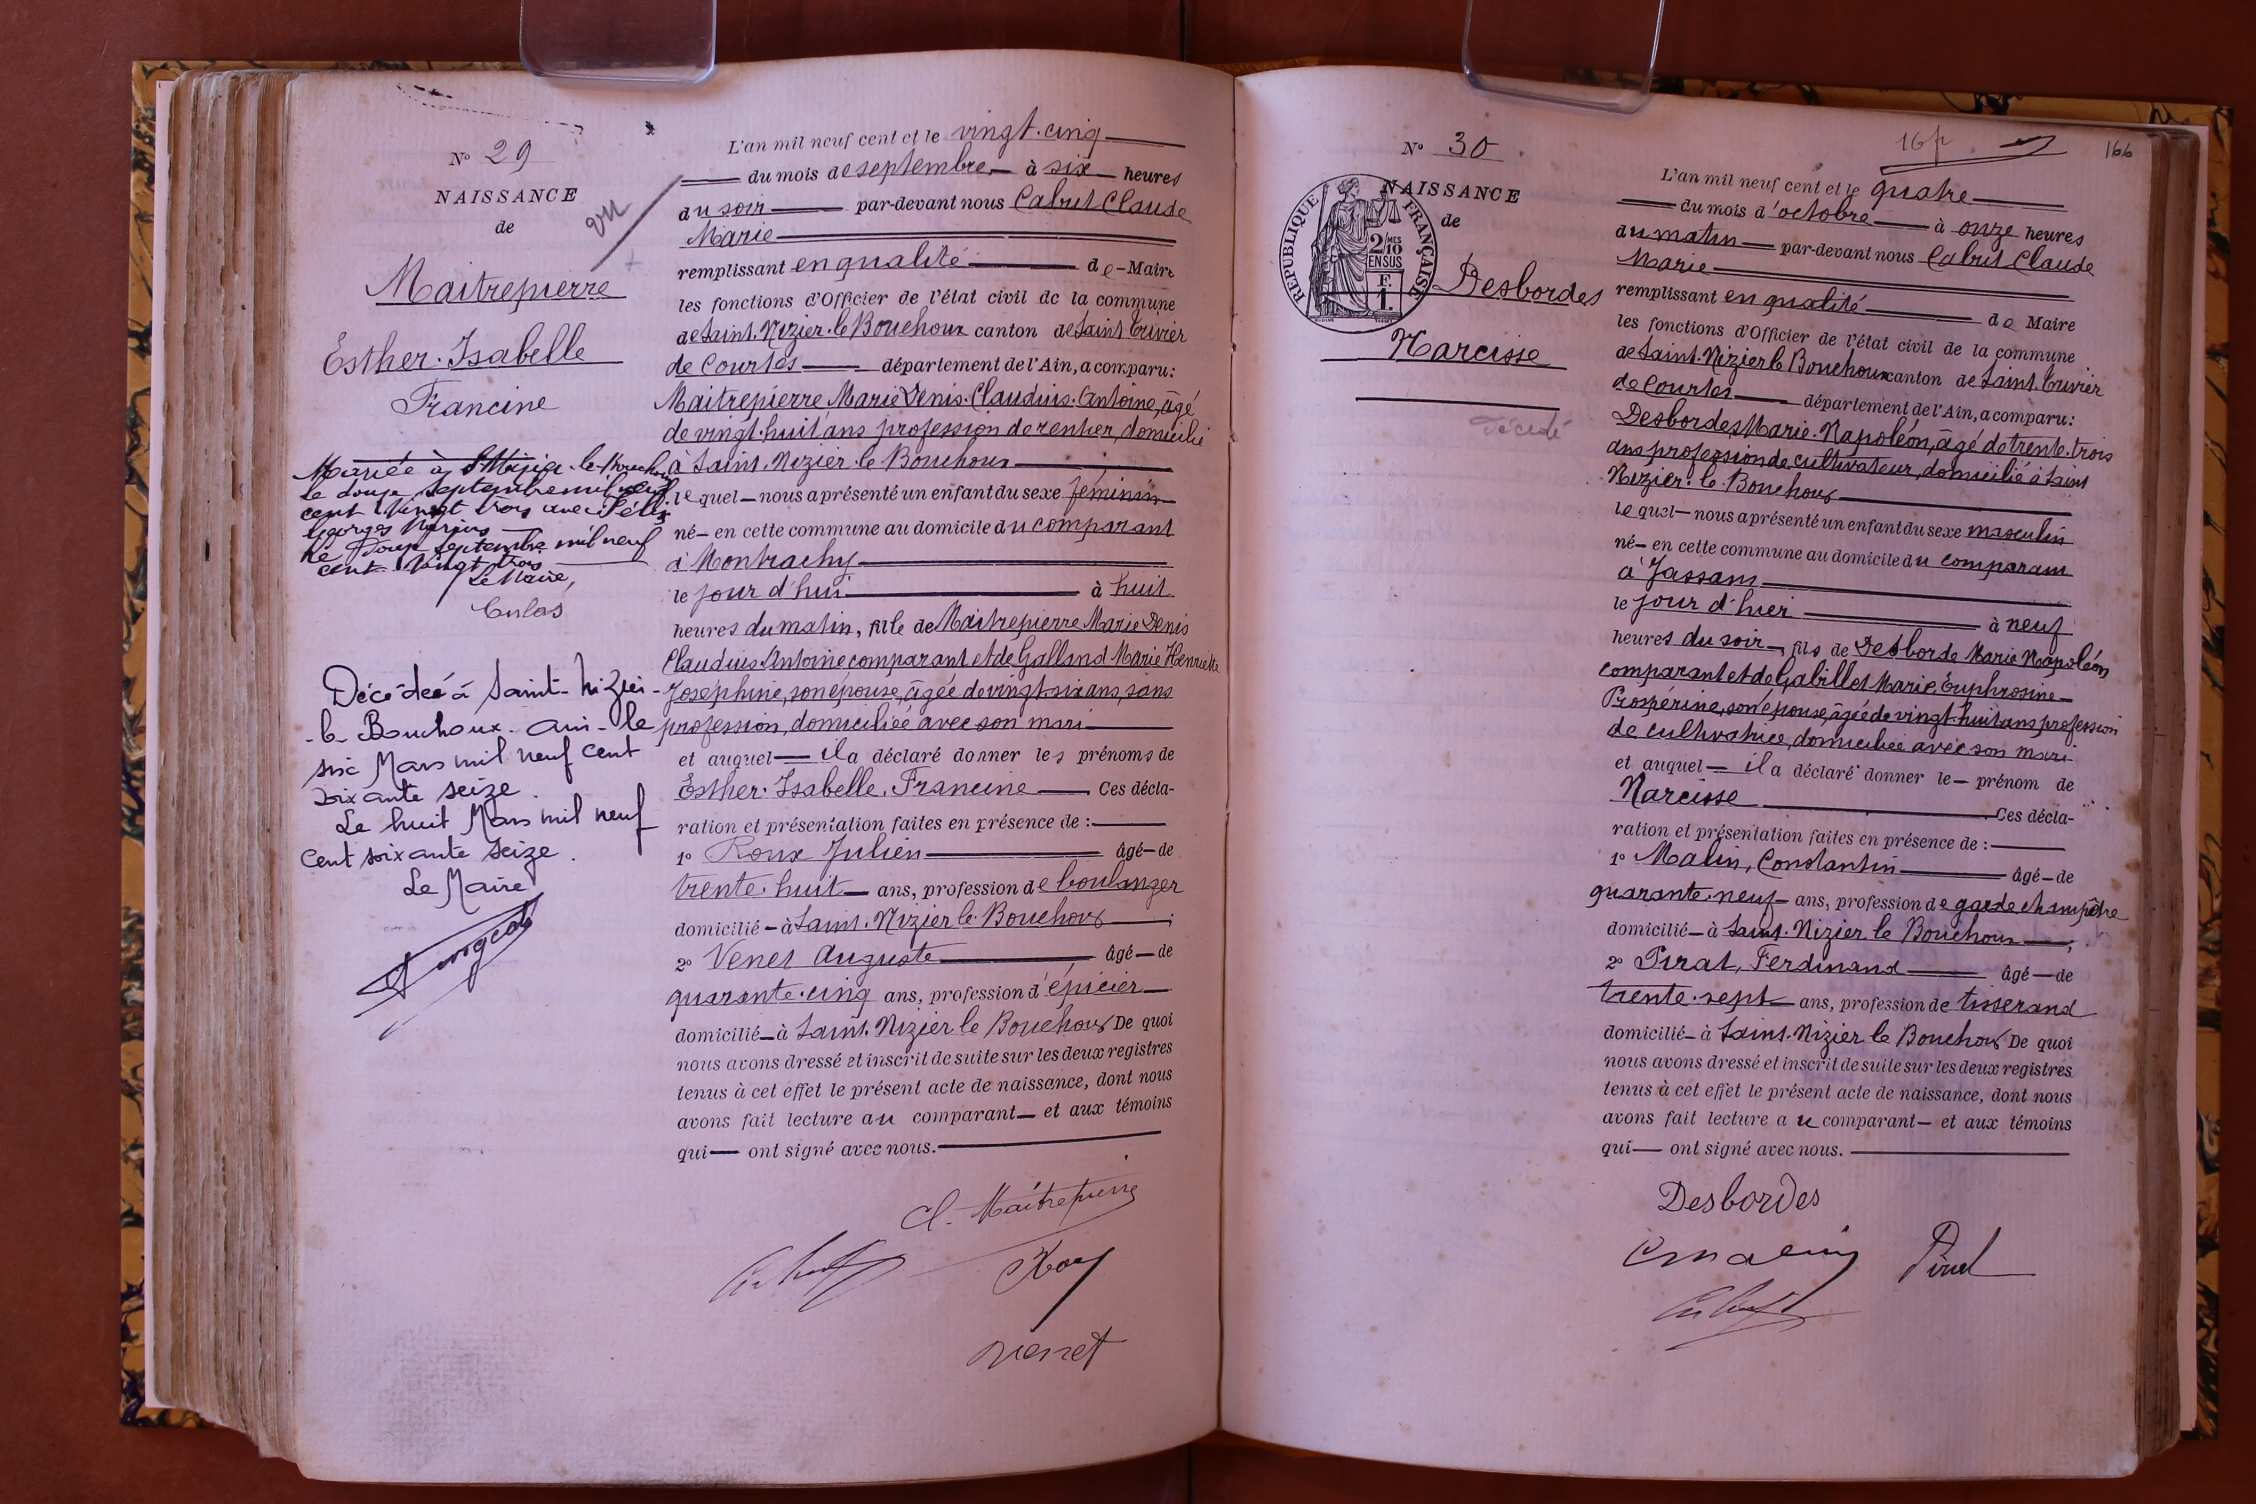 N° 29
NAISSANCE
de
vu
Maitrepierre
Esther. Isabelle
Francine
Mariée à St Nizier-le-Bouchoux
le douze septembre mil neuf
cent vingt trois avec Félix
Georges Marius
Le Douze septembre mil neuf
cent vingt trois
Le Maire,
Décédée à Saint-Nizier-
-le-Bouchoux-Ain-le
six Mars mil neuf cent
soixante seize.
Le huit Mars mil neuf
cent soixante seize.
Le Maire
L'an mil neuf cent et le vingt-cinq
du mois de septembre à six heures
du soir par-devant nous Cabut Claude
Marie
remplissant en qualité de Maire
les fonctions d'Officier de l'état civil de la commune
de Saint. Nizier. le Bouchoux canton de Saint Trivier
de Courtes département de l'Ain, a comparu:
Maitrepierre Marie Denis. Claudius. Antoine, âgé
de vingt. huit ans profession de rentier, domicilié
à Saint. Nizier. le. Bouchoux
lequel nous a présenté un enfant du sexe féminin
né en cette commune au domicile du comparant
à Montrachy
le jour d'hui à huit
heures du matin, fille de Maitrepierre Marie Denis
Claudius Antoine comparant et de Galland Marie Henriette
Joséphine, son épouse, âgée de vingt-six ans, sans
profession, domiciliée avec son mari
et auquel il a déclaré donner les prénoms de
Esther. Isabelle. Francine Ces décla-
ration et présentation faites en présence de :
1° Roux Julien âgé de
trente. huit ans, profession de boulanger
domicilié à Saint. Nizier le. Bouchoux ;
2° Venet Auguste âgé de
quarante. cinq ans, profession d'épicier
domicilié à Saint. Nizier le Bouchoux De quoi
nous avons dressé et inscrit de suite sur les deux registres
tenus à cet effet le présent acte de naissance, dont nous
avons fait lecture au comparant et aux témoins
qui ont signé avec nous.
Cl. Maitrepierre
Cabut
Roux
Venet
N° 30
NAISSANCE
de
RÉPUBLIQUE FRANÇAISE
2/10 MES
EN SUS
F.
1.
Desbordes
Narcisse
Décédé
16 f
166
L'an mil neuf cent et le quatre
du mois d'octobre à onze heures
du matin par-devant nous Cabut Claude
Marie
remplissant en qualité de Maire
les fonctions d'Officier de l'état civil de la commune
de Saint. Nizier le Bouchoux canton de Saint. Trivier
de Courtes département de l'Ain, a comparu:
Desbordes Marie. Napoléon, âgé de trente. trois
ans profession de cultivateur, domicilié à Saint
Nizier. le. Bouchoux
lequel nous a présenté un enfant du sexe masculin
né en cette commune au domicile du comparant
à Jassans
le jour d'hier à neuf
heures du soir, fils de Desborde Marie Napoléon
comparant et de Gabillet Marie Euphrosine
Prospérine, son épouse, âgée de vingt-huit ans profession
de cultivatrice, domiciliée avec son mari
et auquel il a déclaré donner le prénom de
Narcisse Ces décla-
ration et présentation faites en présence de :
1° Malin, Constantin âgé de
quarante. neuf ans, profession de garde champêtre
domicilié à Saint. Nizier le Bouchoux ;
2° Pirat, Ferdinand âgé de
trente. sept ans, profession de tisserand
domicilié à Saint. Nizier le Bouchoux De quoi
nous avons dressé et inscrit de suite sur les deux registres
tenus à cet effet le présent acte de naissance, dont nous
avons fait lecture au comparant et aux témoins
qui ont signé avec nous.
Desbordes
C Malin
Pirat
Cabut